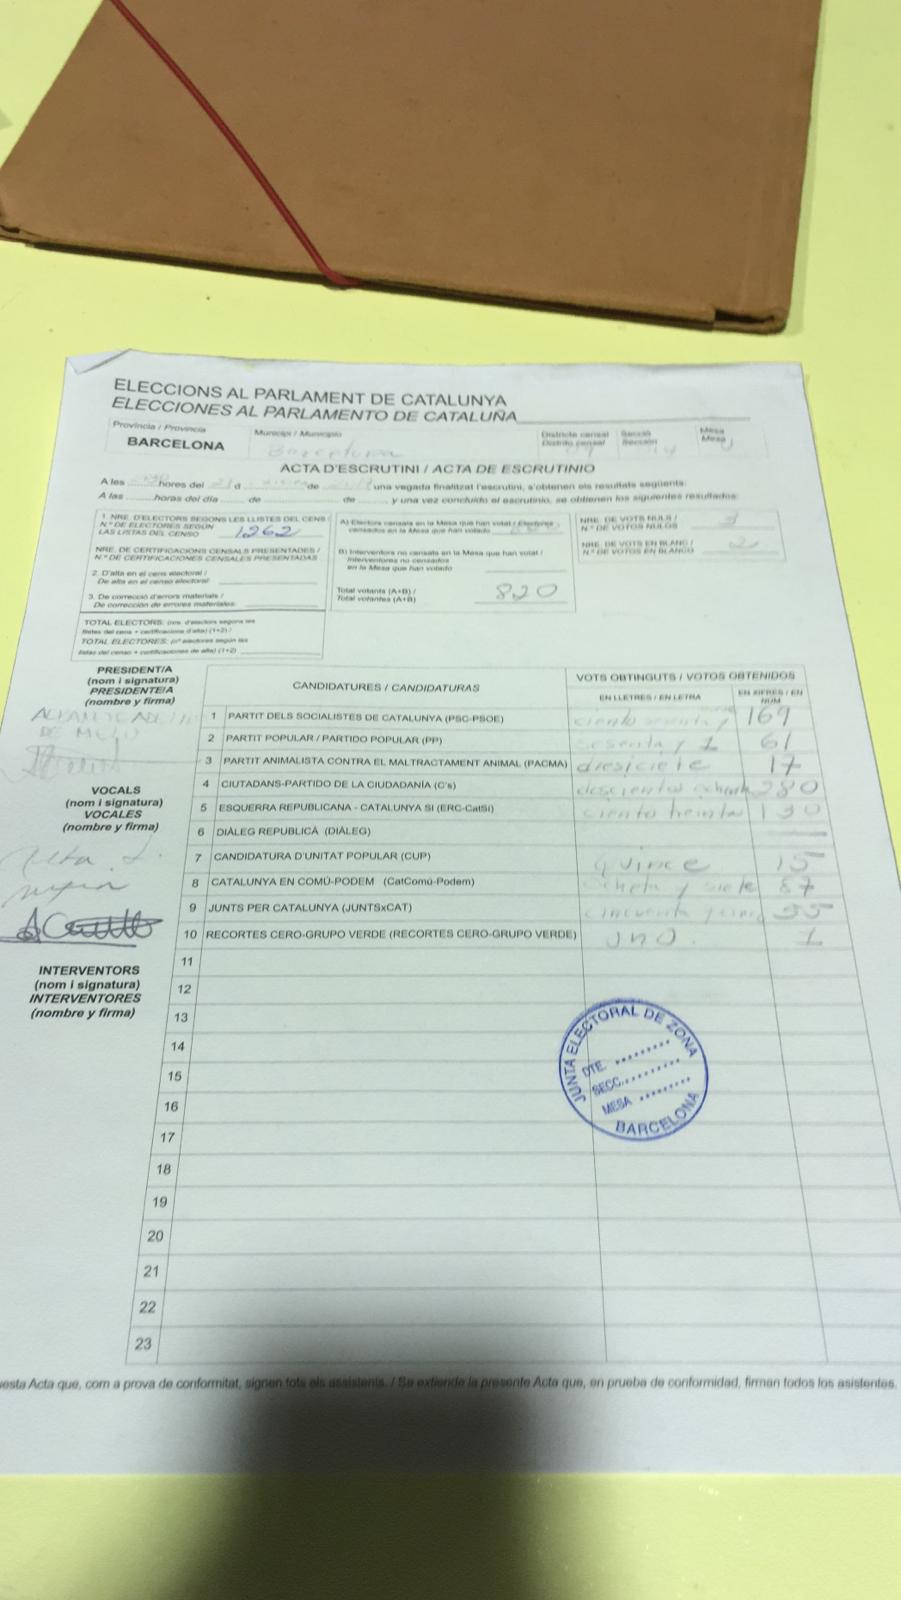 ELECCIONS AL PARLAMENT DE CATALUNYA
ELECCIONES AL PARLAMENTO DE CATALUÑA
Província / Provincia
BARCELONA
Municipi / Municipio
Barcelona
Districte censal
Distrito censal
Secció
Sección
Mesa
Mesa
ACTA D'ESCRUTINI / ACTA DE ESCRUTINIO
A les hores del d de una vegada finalitzat l'escrutini, s'obtenen els resultats següents:
A las horas del día de de y una vez concluido el escrutinio, se obtienen los siguientes resultados:
1. NRE. D'ELECTORS SEGONS LES LLISTES DEL CENS /
N.º DE ELECTORES SEGÚN
LAS LISTAS DEL CENSO 1262
NRE. DE CERTIFICACIONS CENSALS PRESENTADES /
N.º DE CERTIFICACIONES CENSALES PRESENTADAS
2. D'alta en el cens electoral /
De alta en el censo electoral:
3. De correcció d'errors materials /
De corrección de errores materiales:
TOTAL ELECTORS: (nre. d'electors segons les
llistes del cens + certificacions d'alta) (1+2) /
TOTAL ELECTORES: (nº electores según las
listas del censo + certificaciones de alta) (1+2)
A) Electors censats en la Mesa que han votat / Electores
censados en la Mesa que han votado
B) Interventors no censats en la Mesa que han votat /
Interventores no censados
en la Mesa que han votado
Total votants (A+B) /
Total votantes (A+B) 820
NRE. DE VOTS NULS /
N.º DE VOTOS NULOS 3
NRE. DE VOTS EN BLANC /
N.º DE VOTOS EN BLANCO 2
PRESIDENT/A
(nom i signatura)
PRESIDENTE/A
(nombre y firma)
DE MELO
VOCALS
(nom i signatura)
VOCALES
(nombre y firma)
INTERVENTORS
(nom i signatura)
INTERVENTORES
(nombre y firma)
CANDIDATURES / CANDIDATURAS
VOTS OBTINGUTS / VOTOS OBTENIDOS
EN LLETRES / EN LETRA
EN XIFRES / EN
NUM
1 PARTIT DELS SOCIALISTES DE CATALUNYA (PSC-PSOE) ciento sesenta y 169
2 PARTIT POPULAR / PARTIDO POPULAR (PP) sesenta y 1 61
3 PARTIT ANIMALISTA CONTRA EL MALTRACTAMENT ANIMAL (PACMA) diesiciete 17
4 CIUTADANS-PARTIDO DE LA CIUDADANÍA (C's) doscientos ochenta 280
5 ESQUERRA REPUBLICANA - CATALUNYA SI (ERC-CatSí) ciento treinta 130
6 DIÀLEG REPUBLICÀ (DIÀLEG)
7 CANDIDATURA D'UNITAT POPULAR (CUP) quince 15
8 CATALUNYA EN COMÚ-PODEM (CatComú-Podem) ocheta y siete 87
9 JUNTS PER CATALUNYA (JUNTSxCAT) cincuenta y cinco 55
10 RECORTES CERO-GRUPO VERDE (RECORTES CERO-GRUPO VERDE) uno. 1
11
12
13
14
15
16
17
18
19
20
21
22
23
JUNTA ELECTORAL DE ZONA
DTE. .........
SECC. .........
MESA .........
BARCELONA
esta Acta que, com a prova de conformitat, signen tots els assistents. / Se extiende la presente Acta que, en prueba de conformidad, firman todos los asistentes.